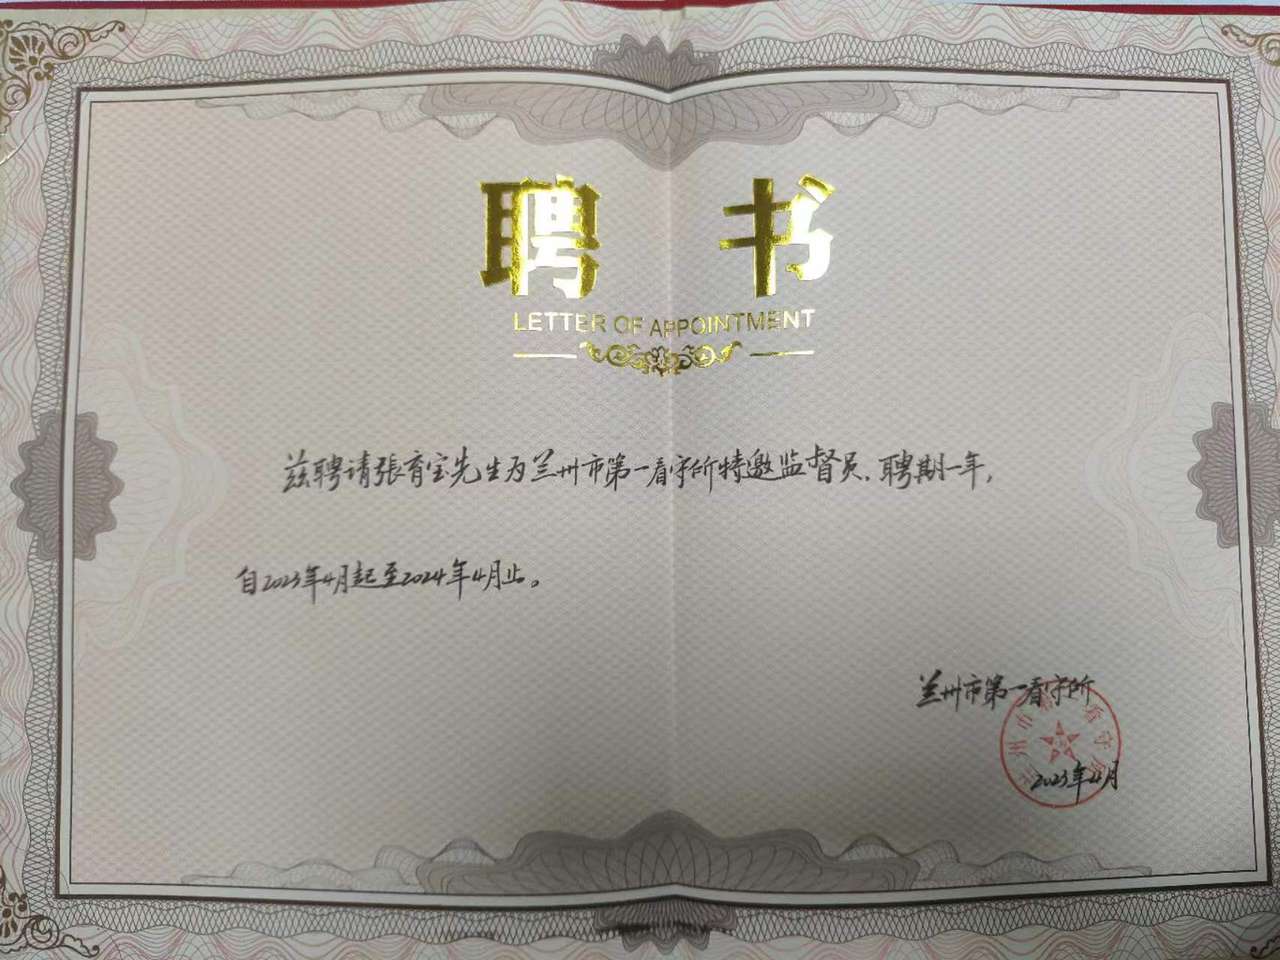 聘书
LETTER OF APPOINTMENT
兹聘请張育宝先生为兰州市第一看守所特邀监督员,聘期一年,
自2023年4月起至2024年4月止。
兰州市第一看守所
2023年4月